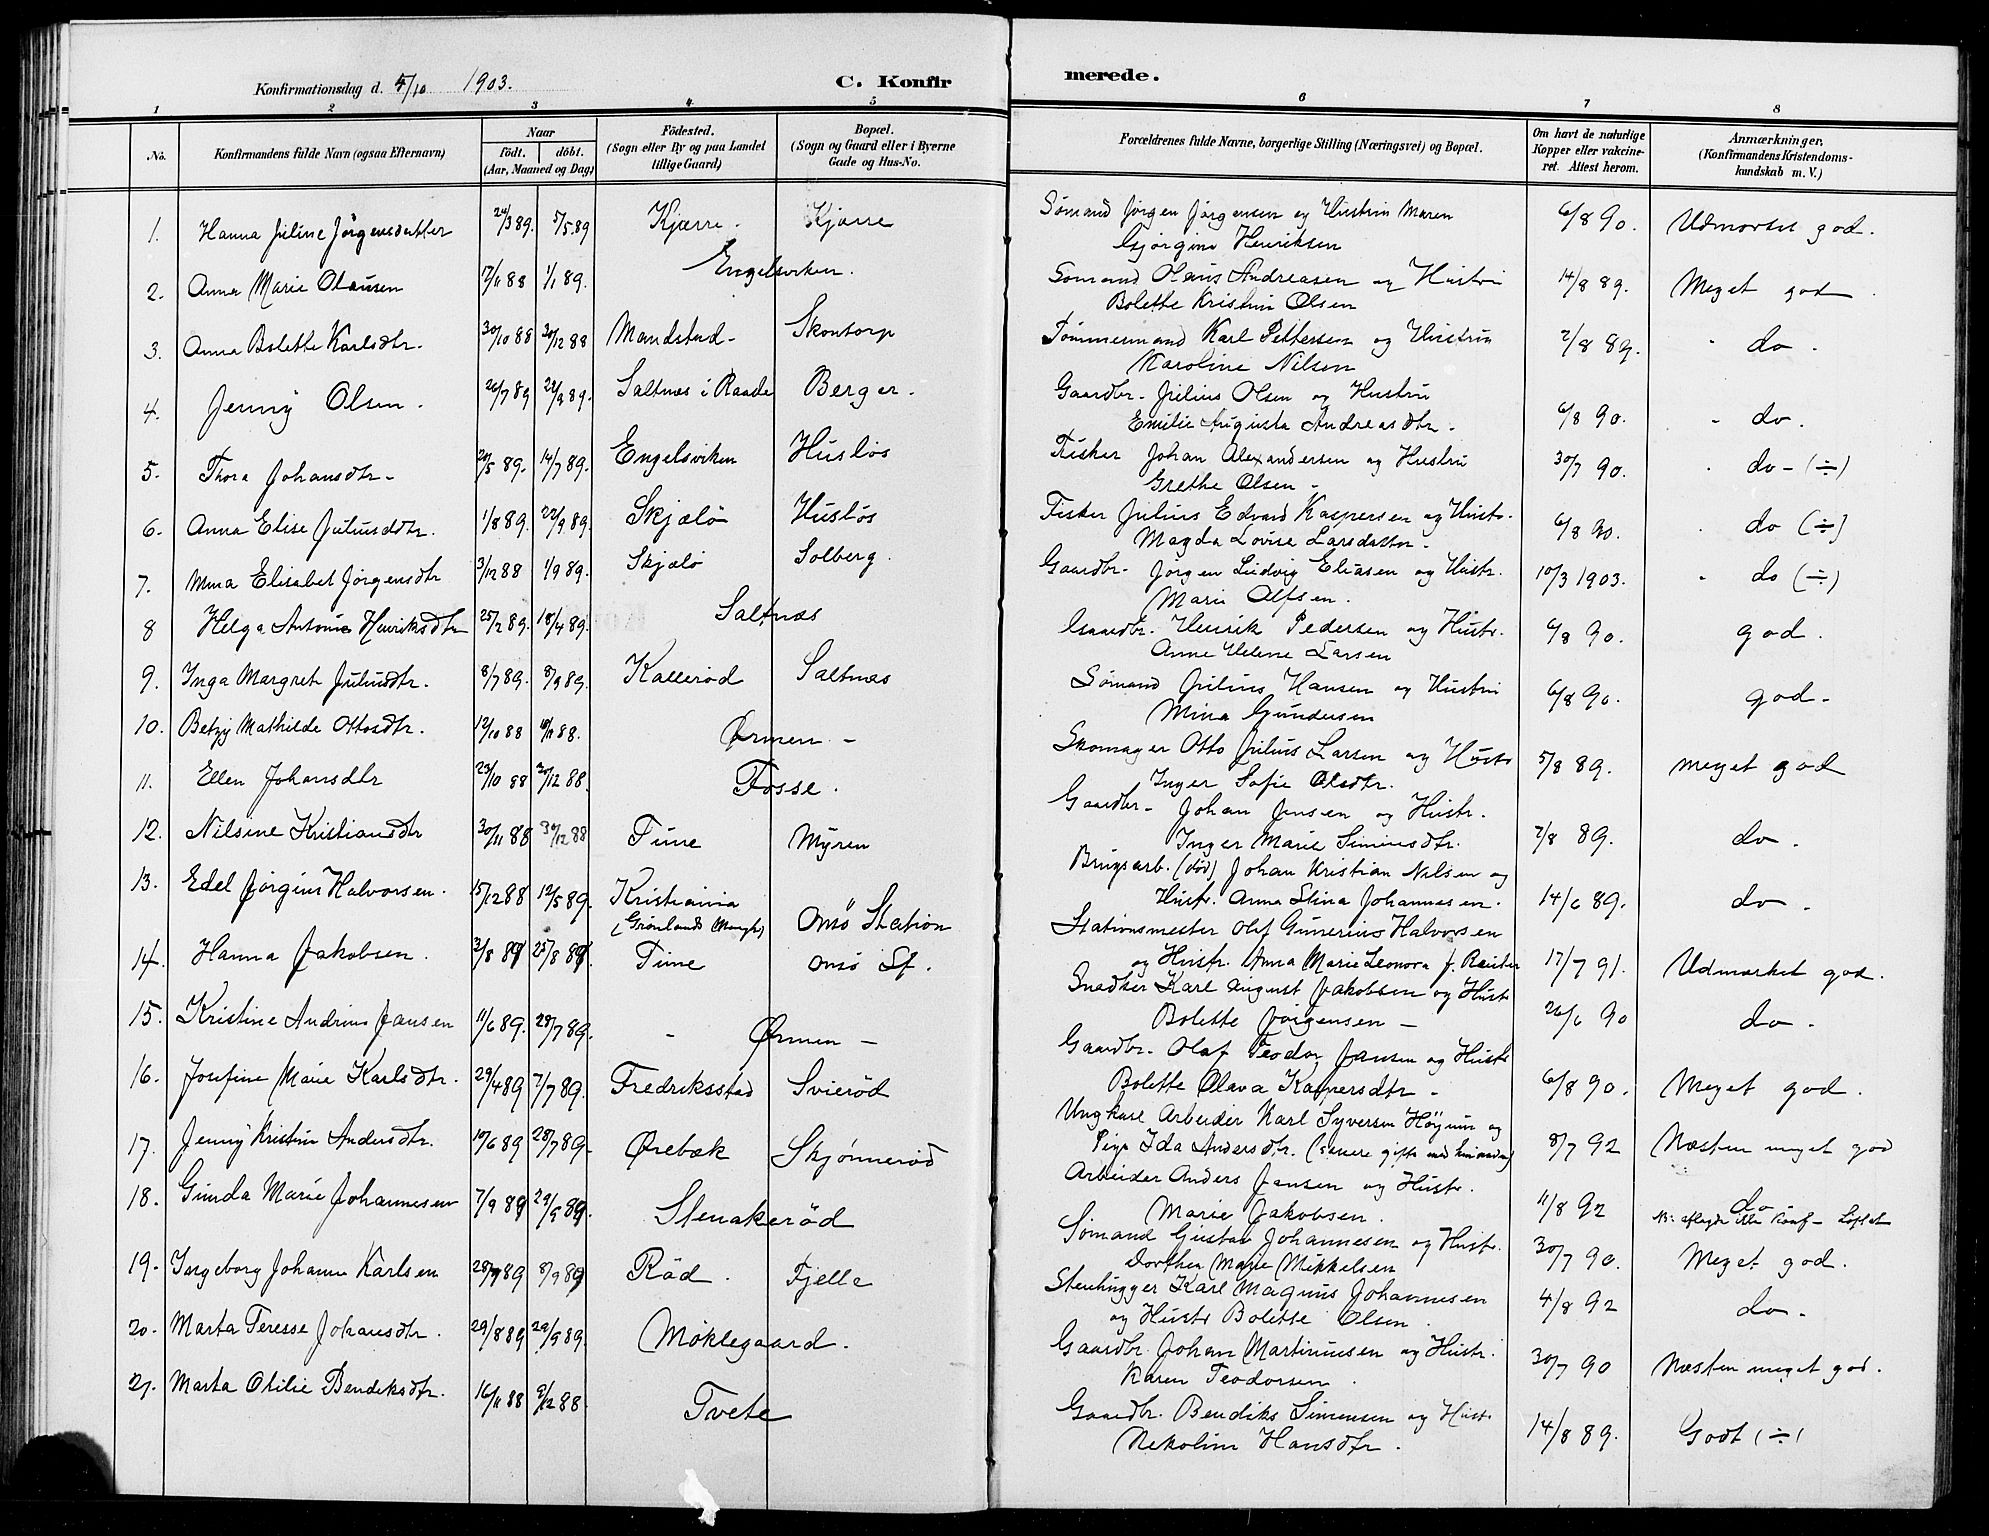 Konfirmationsdag d. 4/10 1903. C. Konfirmerede.
1 2 3 4 5 6 7 8
No. Konfirmandens fulde Navn (ogsaa Efternavn) Naar födt. döbt. (Aar, Maaned og Dag) Födested. (Sogn eller By og paa Landet tillige Gaard) Bopæl. (Sogn og Gaard eller i Byerne Gade og Hus-No. Forældrenes fulde Navne, borgerlige Stilling (Næringsvei) og Bopæl. Om havt de naturlige Kopper eller vakcineret. Attest herom. Anmærkninger. (Konfirmandens Kristendomskundskab m. V.)
1. Hanna Juline Jörgensdatter 24/3 89. 5/5 89 Kjærre. Kjærre Sömand Jörgen Jörgensen og Hustru Maren 6/8 90. Udmærket god.
Gjörgine Henriksen
2. Anna Marie Olausen 17/11 88 1/1 89. Engelsviken. Sömand Olaus Andreasen og Hustru 14/8 89. Meget god.
Bolette Kristine Olsen
3. Anna Bolette Karlsdtr. 30/10 88 30/12 88 Mandstad - Skontorp Tömmermand Karl Pettersen og Hustru 2/8 89. " do.
Karoline Nilsen
4. Jenny Olsen. 26/7 89 22/9 89. Saltnes i Raade Berger. Gaardbr. Julius Olsen og Hustru 6/8 90. - do.
Emilie Augusta Andreasdtr.
5. Thora Johansdtr - 20/5 89. 14/7 89. Engelsviken Huslös Fisker Johan Alexandersen og Hustru 30/7 90. do - (÷)
Grethe Olsen -
6. Anna Elise Juliusdtr. 1/8 89. 22/9 89. Skjælö Huslös Fisker Julius Edvard Kaspersen og Hustr. 6/8 90. do (÷)
Magda Lovise Larsdatter -
7. Mina Elisabet Jörgensdtr 3/12 88 1/9 89. Skjælö Solberg. Gaardbr. Jörgen Ludvig Eliasen og Hustr. 10/3 1903. do (÷)
Marie Alfsen.
8 Helga Antonie Henriksdtr 25/2 89. 18/4 89. Saltnæs Gaardbr. Henrik Pedersen og Hustr. 6/8 90. god.
Anne Helene Larsen
9. Inga Margrete Juliusdtr. 8/7 89. 8/9 89. Kallerød Saltnæs Sömand Julius Hansen og Hustru 6/8 90. god -
Mina Gundersen
10. Betzy Mathilde Ottosdtr. 12/10 88 18/11 88. Ørmen - Skomager Otto Julius Larsen og Hustr 5/8 89. meget god
Inger Sofie Olsdtr.
11. Ellen Johansdtr 23/10 88 30/12 88. Fosse. Gaardbr - Johan Jensen og Hustr. 2/8 89. do.
Inger Marie Simensdtr.
12. Nilsine Kristiansdtr 30/11 88 30/12 88 Tune Myren Brugsarb. (död) Johan Kristian Nilsen og
Hustr. Anna Stina Johannesen. 14/6 89. do.
13. Edel Jörgine Halvorsen. 15/12 88 12/5 89. Kristiania (Grönlands Mengh) Onsö Station Stationsmester Olaf Gunerius Halvorsen
og Hustr. Anna Marie Leonora J. Reuter 17/7 91. Udmærket god.
14. Hanna Jakobsen. 3/8 89 25/8 89. Tune Onsö St. Snedker Karl August Jakobsen og Hustr
Bolette Jörgensen - 26/6 90 do.
15. Kristine Andrine Jansen 11/6 89. 28/7 89. - Ørmen - Gaardbr. Olaf Teodor Jansen og Hustr
Bolette Olava Kaspersdtr - 6/8 90. Meget god.
16. Josefine Marie Karlsdtr. 29/4 89 7/7 89. Fredriksstad Svierød Ungkarl Arbeider Karl Syversen Höyum og
Pige Ida Andersdtr. (senere gifte med hinanden) 8/7 92 Næsten meget god
17. Jenny Kristine Andersdtr. 10/6 89 28/7 89. Ørebæk Skjønnerød Arbeider Anders Jansen og Hustr.
Marie Jakobsen. 11/8 92 do
NB: aflagde ikke Konf. - Löftet
18. Gunda Marie Johannesen 7/9 89 29/9 89 Stenakerød Sömand Gustav Johannesen og Hustr. 30/7 90. Meget god.
Dorthea Marie Mikkelsen
19. Ingeborg Johanne Karlsen 28/7 89 8/9 89 Röd. Fjelle Stenhugger Karl Magnus Johannesen 4/8 92 do.
og Hustr Bolette Olsen.
20. Marta Terese Johansdtr. 29/8 89 29/9 89. Møklegaard. Gaardbr. Johan Martiniusen og Hustr. 30/7 90 Næsten meget god.
Karen Teodorsen.
21. Marta Otilie Bendiksdtr. 16/11 88 9/12 88. Tvete Gaardbr. Bendiks Simensen og Hustr 14/8 89. Godt (÷)
Nekoline Hansdtr.